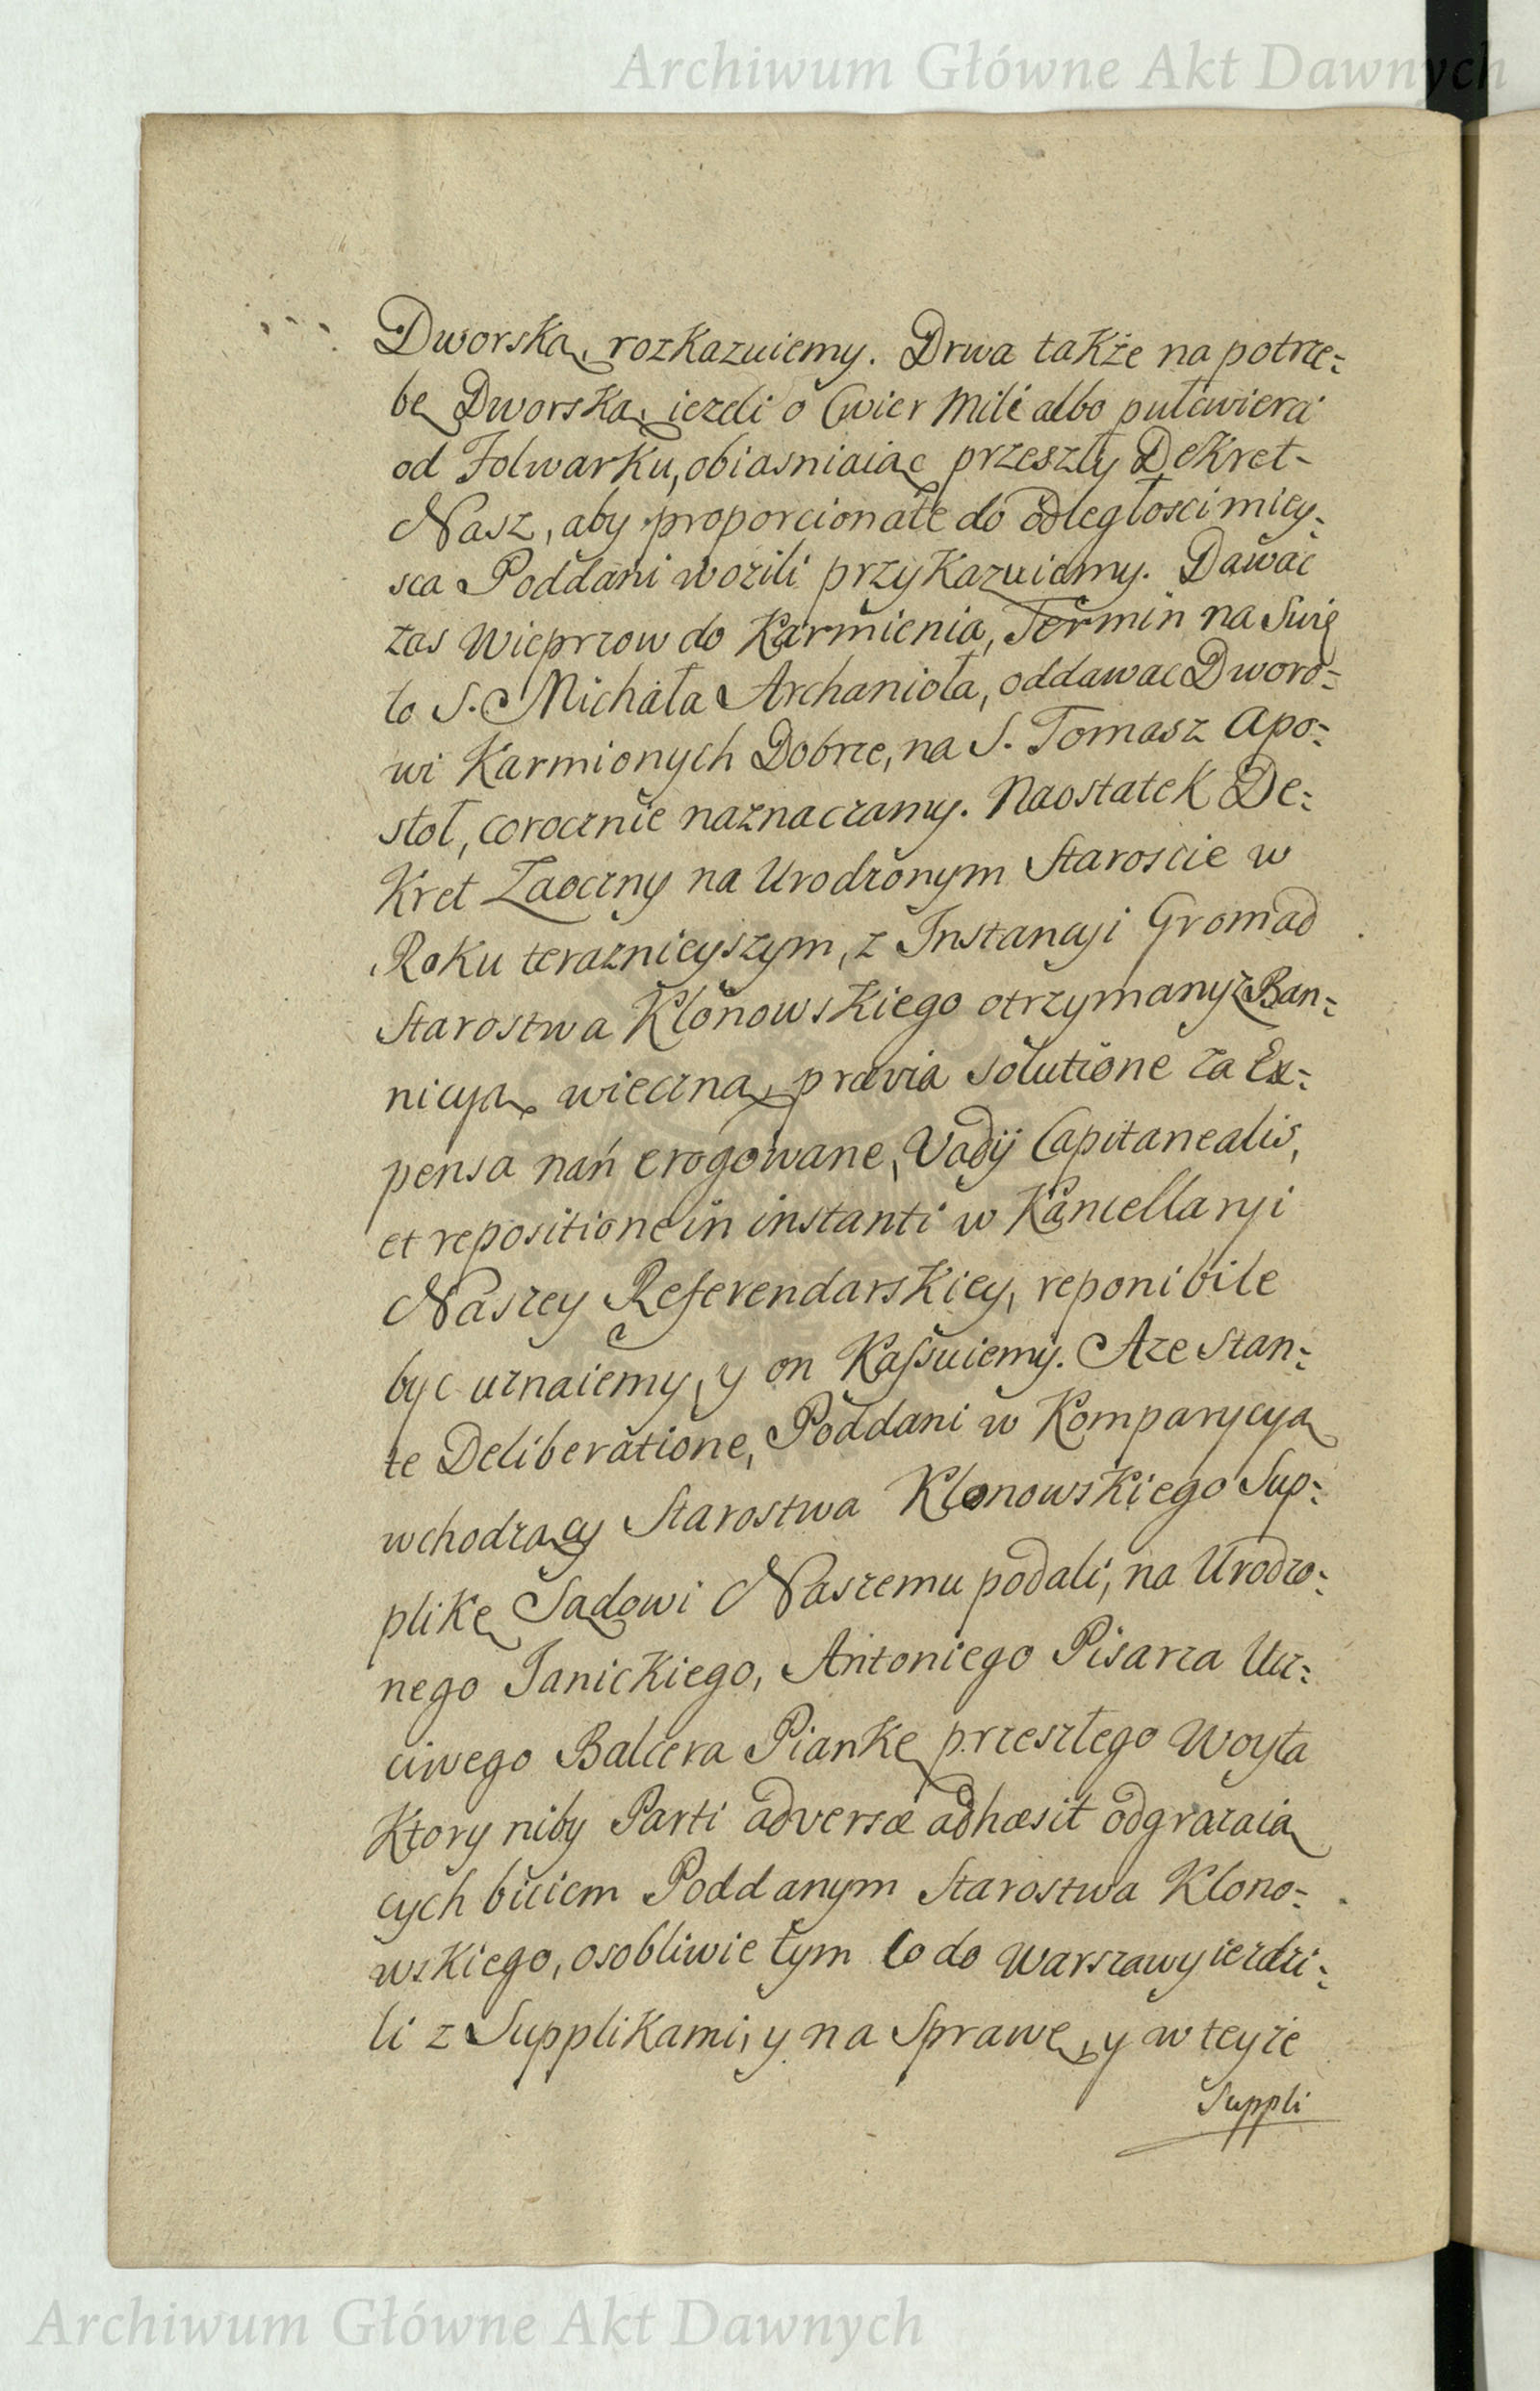 Archiwum Główne Akt Dawnych
Dworską rozkazuiemy. Drwa także na potrze=
bę Dworską ieżeli o Cwierć Mili albo pułcwierci
od Folwarku, obiasniaiąc przeszły Dekret
Nasz, aby proporcionate do odległości miey=
sca Poddani wozili przykazuiemy. Dawać
zas Wieprzow do Karmienia, Termin na Swię
to S. Michała Archanioła, oddawac Dworo=
wi Karmionych Dobrze, na S. Tomasz Apo=
stoł, corocznie naznaczamy. Naostatek De=
kret Zaoczny na Urodzonym Staroscie w
Roku teraznieyszym, z Instancyi Gromad
Starostwa Klonowskiego otrzymany z Ban=
nicyą wieczną, prævia solutione za Ex=
pensa nań erogowane, Vadij Capitanealis,
et repositione in instanti w Kancellaryi
Naszey Referendarskiey, reponibile
byc uznaiemy, y on Kassuiemy. A ze stan=
te Deliberatione, Poddani w Komparycyą
wchodzący Starostwa Klonowskiego Sup=
plikę Sądowi Naszemu podali, na Urodzo=
nego Janickiego, Antoniego Pisarza Ucz=
ciwego Balcera Piankę przeszłego Woyta
Ktory niby Parti adversæ adhæsit odgrazaią
cych biciem Poddanym Starostwa Klono=
wskiego, osobliwie tym Co do Warszawy iezdzi=
li z Supplikami, y na Sprawę, y w teyże
Suppli
Archiwum Główne Akt Dawnych